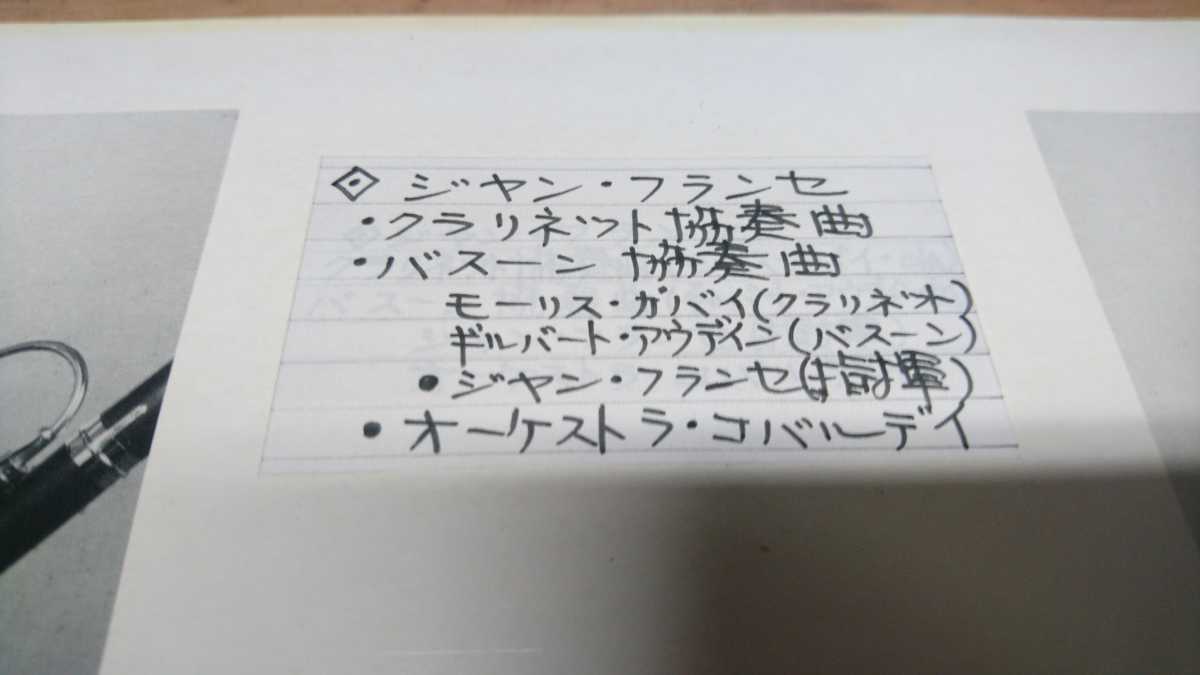 ◇ ジャン・フランセ
・クラリネット協奏曲
・バスーン 協奏曲
モーリス・ガバイ(クラリネット)
ギルバート・アウディン(バスーン)
• ジャン・フランセ(指揮)
• オーケストラ・コバルディ